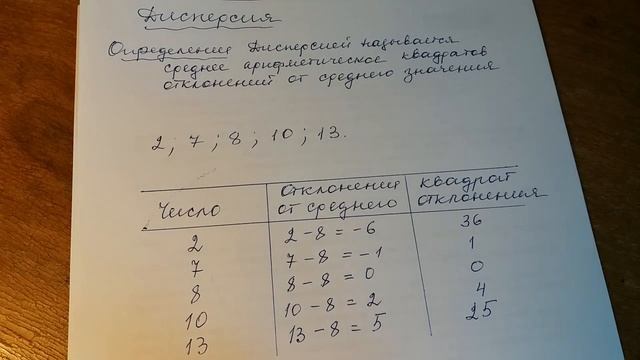 Дисперсия
Определение Дисперсией называется
среднее арифметическое квадратов
отклонений от среднего значения
2; 7; 8; 10; 13.
Число отклонений от среднего квадрат отклонения
2 2-8=-6 36
7 7-8=-1 1
8 8-8=0 0
10 10-8=2 4
13 13-8=5 25